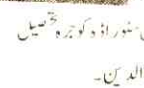 منور اڈہ کوجرہ تحصیل
الدین۔